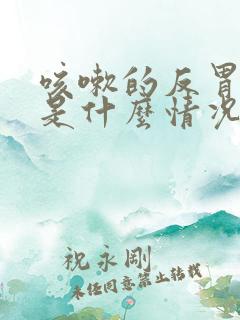 咳嗽的反胃
是什麼情况
祝永剛
未任同意禁止转载